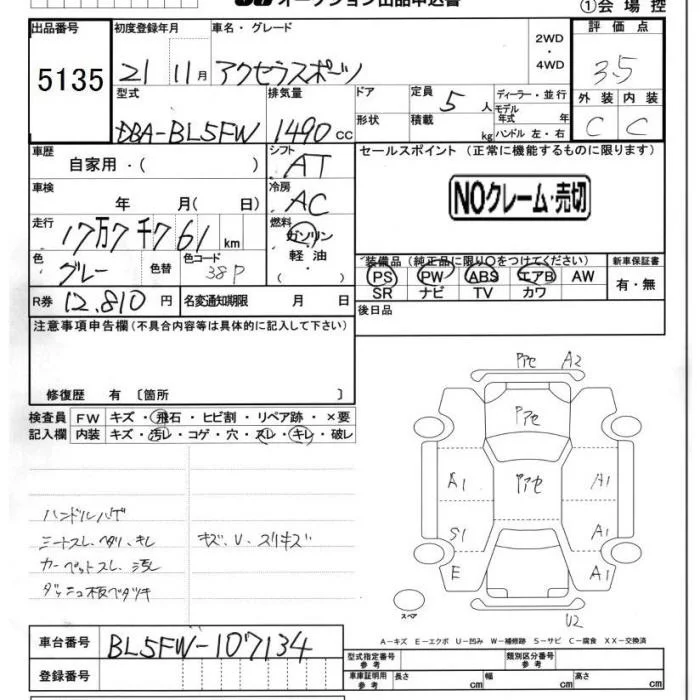 オークション出品申込書
①会場控
出品番号 初度登録年月 車名・グレード 2WD・4WD 評価点
5135 21 11月 アクセラスポーツ 3.5
型式 排気量 ドア 定員 5人 ディーラー・並行 外装 内装
DBA-BL5FW 1490cc 形状 積載 kg モデル年式 年 ハンドル 左・右 C C
車歴 シフト セールスポイント (正常に機能するものに限ります)
自家用・( ) AT
車検 冷房 NOクレーム・売切
年 月( 日) AC
走行 燃料
17万7千761km ガソリン
軽油
( )
色 色替 色コード 装備品 (純正品に限り○をつけてください) 新車保証書
グレー 38P PS PW ABS エアB AW 有・無
SR ナビ TV カワ
R券 12,810円 名変通知期限 月 日 後日品
注意事項申告欄(不具合内容等は具体的に記入して下さい)
修復歴 有 〔箇所 〕
検査員 FW キズ・飛石・ヒビ割・リペア跡・×要
記入欄 内装 キズ・汚レ・コゲ・穴・スレ・キレ・破レ
ハンドルハゲ
シートスレ、ヘタリ、キレ キズ、U、スリキズ
カーペットスレ、汚レ
ダッシュ板ベタツキ
A2
A1 A1
S1 A1
E A1
U2
スペア
A－キズ E－エクボ U－凹み W－補修跡 S－サビ C－腐食 XX－交換済
車台番号 BL5FW-107134
型式指定番号 参考 類別区分番号 参考
登録番号 車庫証明用 参考 長さ cm 幅 cm 高さ cm